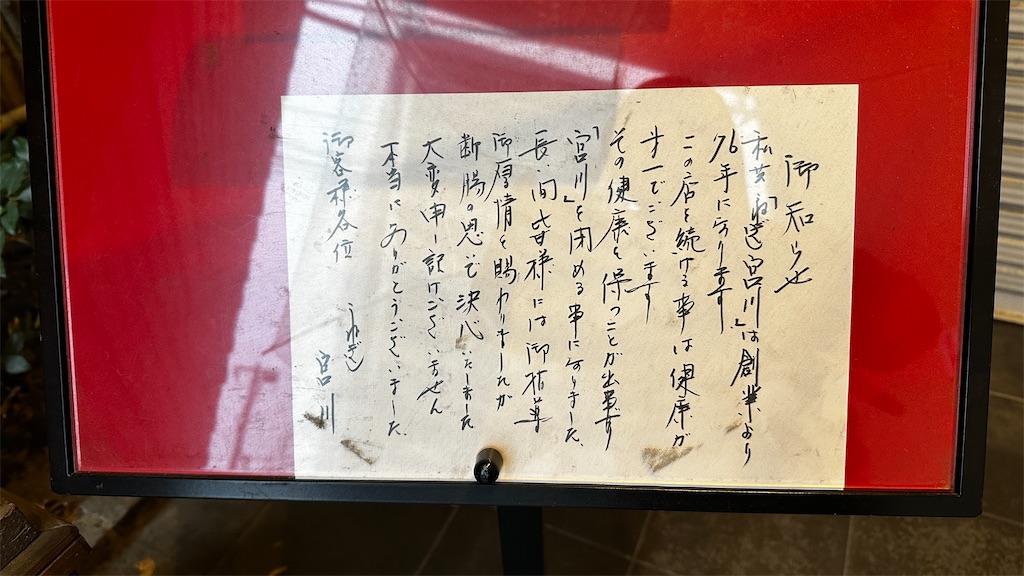 御知らせ
私共「うなぎ宮川」は創業より
76年になります
この店を続ける事は健康が
第一でございます
その健康を保つことが出来ず
「宮川」を閉める事になりました、
長い間皆様には御指導
御厚情を賜わりましたが
断腸の思いで決心いたしました
大変申し訳けございません
本当にありがとうございました、
御客様各位
うなぎ
宮川